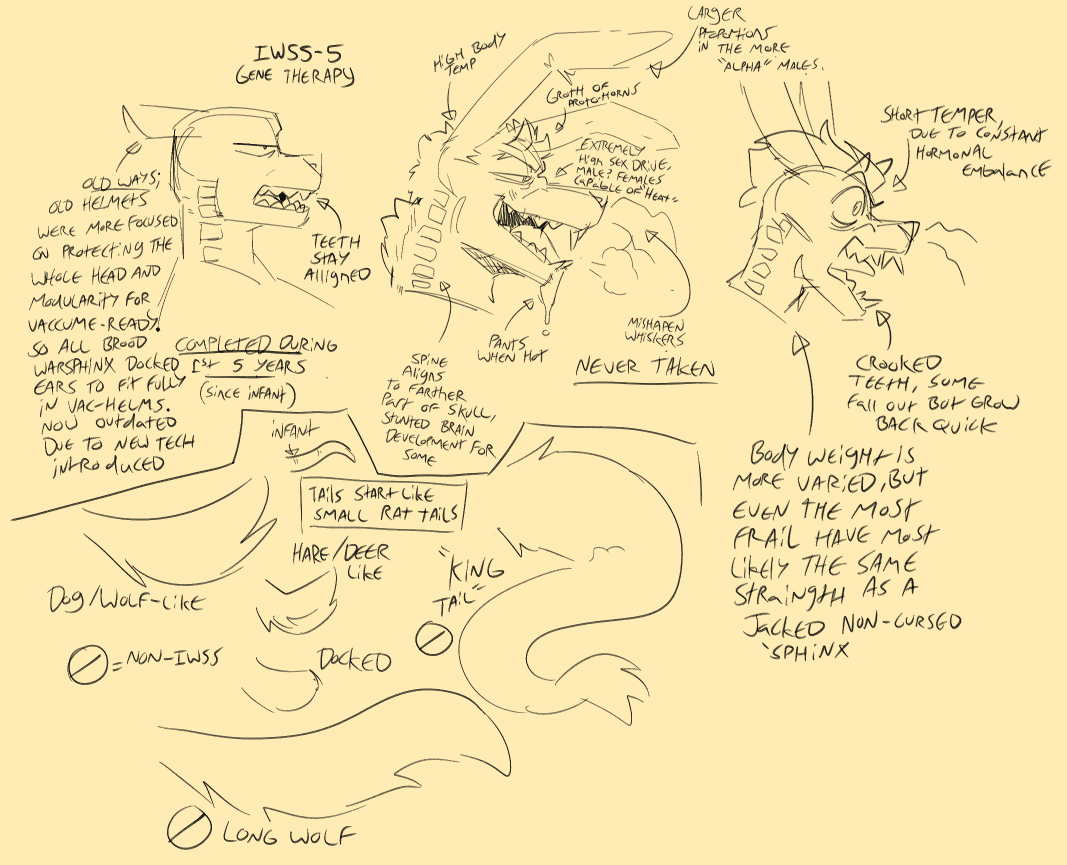 IWSS-5
GENE THERAPY
OLD WAYS;
OLD HELMETS
WERE MORE FOCUSED
ON PROTECTING THE
WHOLE HEAD AND
MODULARITY FOR
VACCUME-READY.
SO ALL BROOD
WARSPHINX DOCKED
EARS TO FIT FULLY
IN VAC-HELMS.
NOW OUTDATED
DUE TO NEW TECH
INTRODUCED
TEETH
STAY
AlliGNED
COMPLETED DURING
1ST 5 YEARS
(SINCE INFANT)
HIGH BODY
TEMP
LARGER
PROPORTIONS
IN THE MORE
"ALPHA" MALES.
GROTH OF
PROTO-HORNS
EXTREMELY
HIGH SEX DRIVE,
MALE? FEMALES
CAPABLE OF "HEAT"
MISHAPEN
WHISKERS
PANTS
WHEN HOT
SPINE
ALIGNS
TO FARTHER
PART OF SKULL,
STUNTED BRAIN
DEVELOPMENT FOR
SOME
NEVER TAKEN
SHORT TEMPER,
DUE TO CONSTANT
HORMONAL
EMBALANCE
CROOKED
TEETH, SOME
FALL OUT BUT GROW
BACK QUICK
BODY WEIGHT IS
MORE VARIED, BUT
EVEN THE MOST
FRAIL HAVE MOST
LIKELY THE SAME
STRAINGTH AS A
JACKED NON-CURSED
'SPHINX
INFANT
TAILS START LIKE
SMALL RAT TAILS
DOG/WOLF-LIKE
HARE/DEER
LIKE
"KING
TAIL"
= NON-IWSS
DOCKED
LONG WOLF